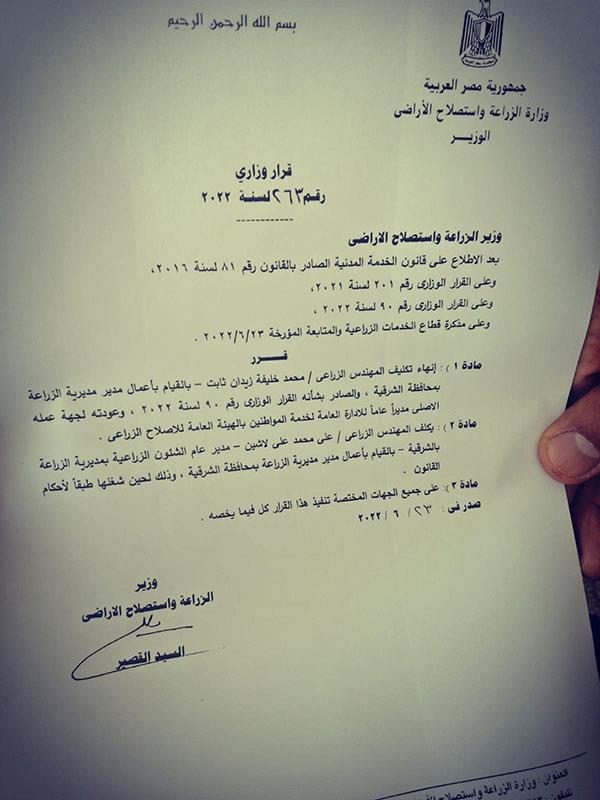 بسم الله الرحمن الرحيم
جمهورية مصر العربية
وزارة الزراعة واستصلاح الأراضى
الوزيـــر
قرار وزاري
رقم ٢٦٣ لسنة ٢٠٢٢
------------
وزير الزراعة واستصلاح الاراضى
بعد الاطلاع على قانون الخدمة المدنية الصادر بالقانون رقم ٨١ لسنة ٢٠١٦،
وعلى القرار الوزارى رقم ٢٠١ لسنة ٢٠٢١،
وعلى القرار الوزارى رقم ٩٠ لسنة ٢٠٢٢ ،
وعلى مذكرة قطاع الخدمات الزراعية والمتابعة المؤرخة ٢٠٢٢/٦/٢٣ .
قـــرر
مادة ١ ): إنهاء تكليف المهندس الزراعى / محمد خليفة زيدان ثابت – بالقيام بأعمال مدير مديرية الزراعة
بمحافظة الشرقية ، والصادر بشأنه القرار الوزارى رقم ٩٠ لسنة ٢٠٢٢ ، وعودته لجهة عمله
الاصلى مديراً عاماً للادارة العامة لخدمة المواطنين بالهيئة العامة للاصلاح الزراعى .
مادة ٢ ): يكلف المهندس الزراعى / على محمد على لاشين – مدير عام الشئون الزراعية بمديرية الزراعة
بالشرقية – بالقيام بأعمال مدير مديرية الزراعة بمحافظة الشرقية ، وذلك لحين شغلها طبقاً لأحكام
القانون .
مادة ٣ ): على جميع الجهات المختصة تنفيذ هذا القرار كل فيما يخصه .
صدر فى : ٢٣ / ٦ / ٢٠٢٢
وزير
الزراعة واستصلاح الاراضى
السيد القصير
العنوان : وزارة الزراعة واستصلاح
تليفون